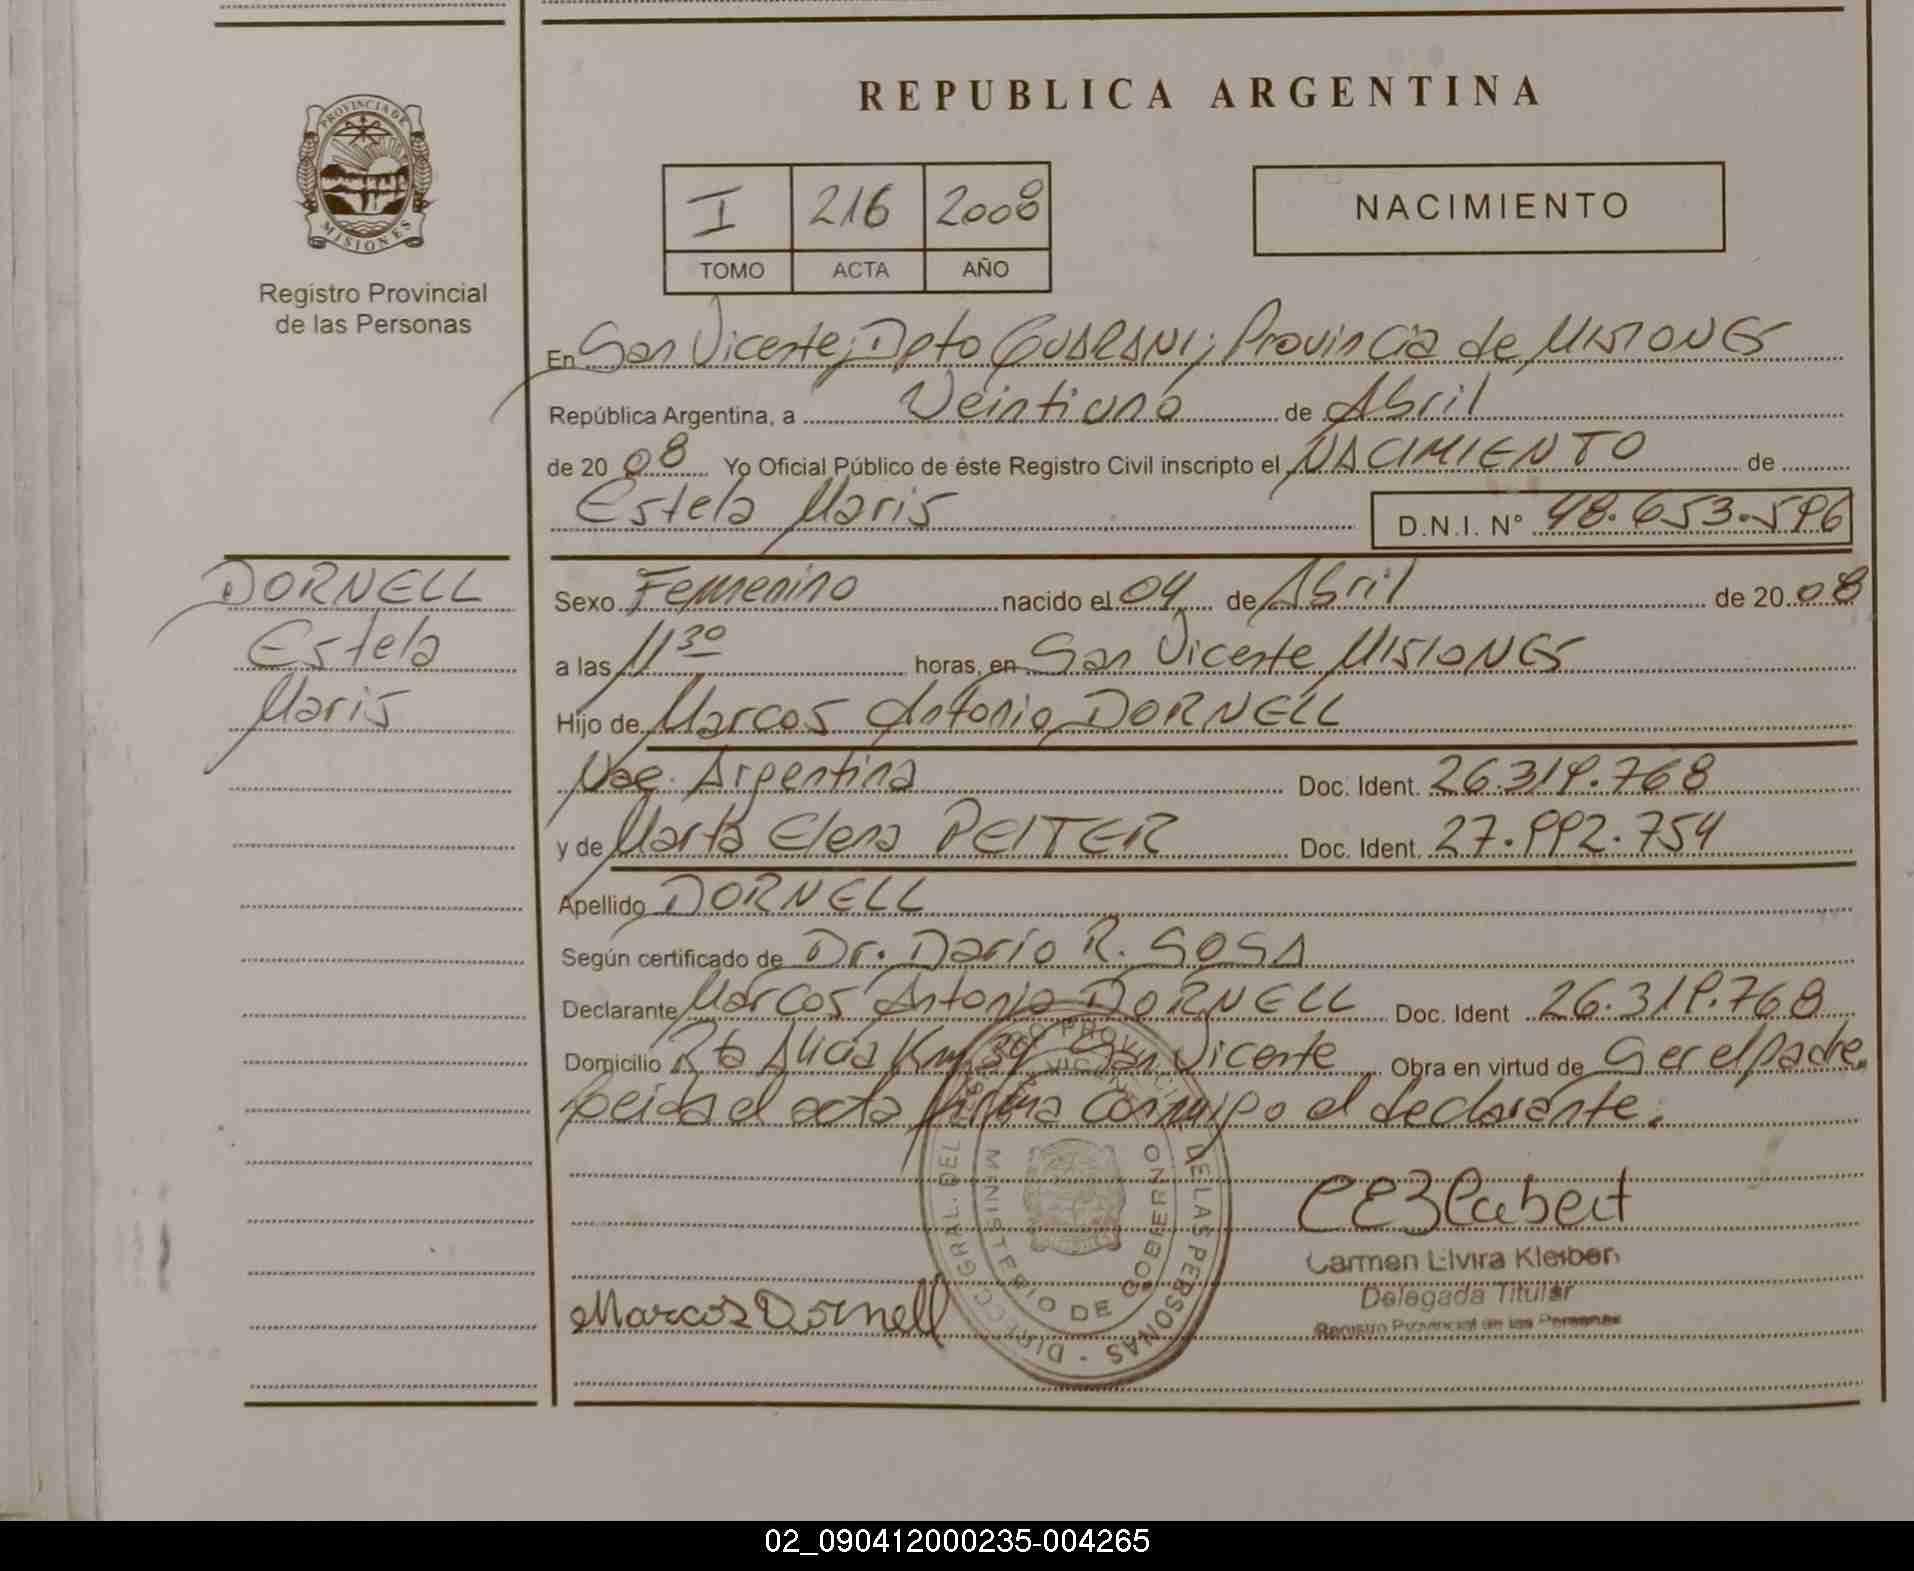 REPUBLICA ARGENTINA
PROVINCIA DE
MISIONES
Registro Provincial
de las Personas
I 216 2008
TOMO ACTA AÑO
NACIMIENTO
En San Vicente, Dpto GUARANI; Provincia de MISIONES
República Argentina, a Veintiuno de Abril
de 2008 Yo Oficial Público de éste Registro Civil inscripto el NACIMIENTO de
Estela Maris D.N.I. N° 48.653.596
DORNELL
Estela
Maris
Sexo Femenino nacido el 04 de Abril de 2008
a las 11 30 horas, en San Vicente MISIONES
Hijo de Marcos Antonio DORNELL
Nac. Argentina Doc. Ident. 26.319.768
y de Marta Elena PEITER Doc. Ident. 27.992.754
Apellido DORNELL
Según certificado de Dr. Darío R. SOSA
Declarante Marcos Antonio DORNELL Doc. Ident 26.319.768
Domicilio Rta Alicia Km 39 San Vicente Obra en virtud de Ser el padre.
Leida el acta firma conmigo el declarante.
DIRECC. GRAL. DEL REGISTRO PROVINCIAL DE LAS PERSONAS -
SAN VICENTE
MINISTERIO DE GOBERNO
Carmen Elvira Kleiber
Delegada Titular
Registro Provincial de las Personas
Marcos Dornell
02_090412000235-004265